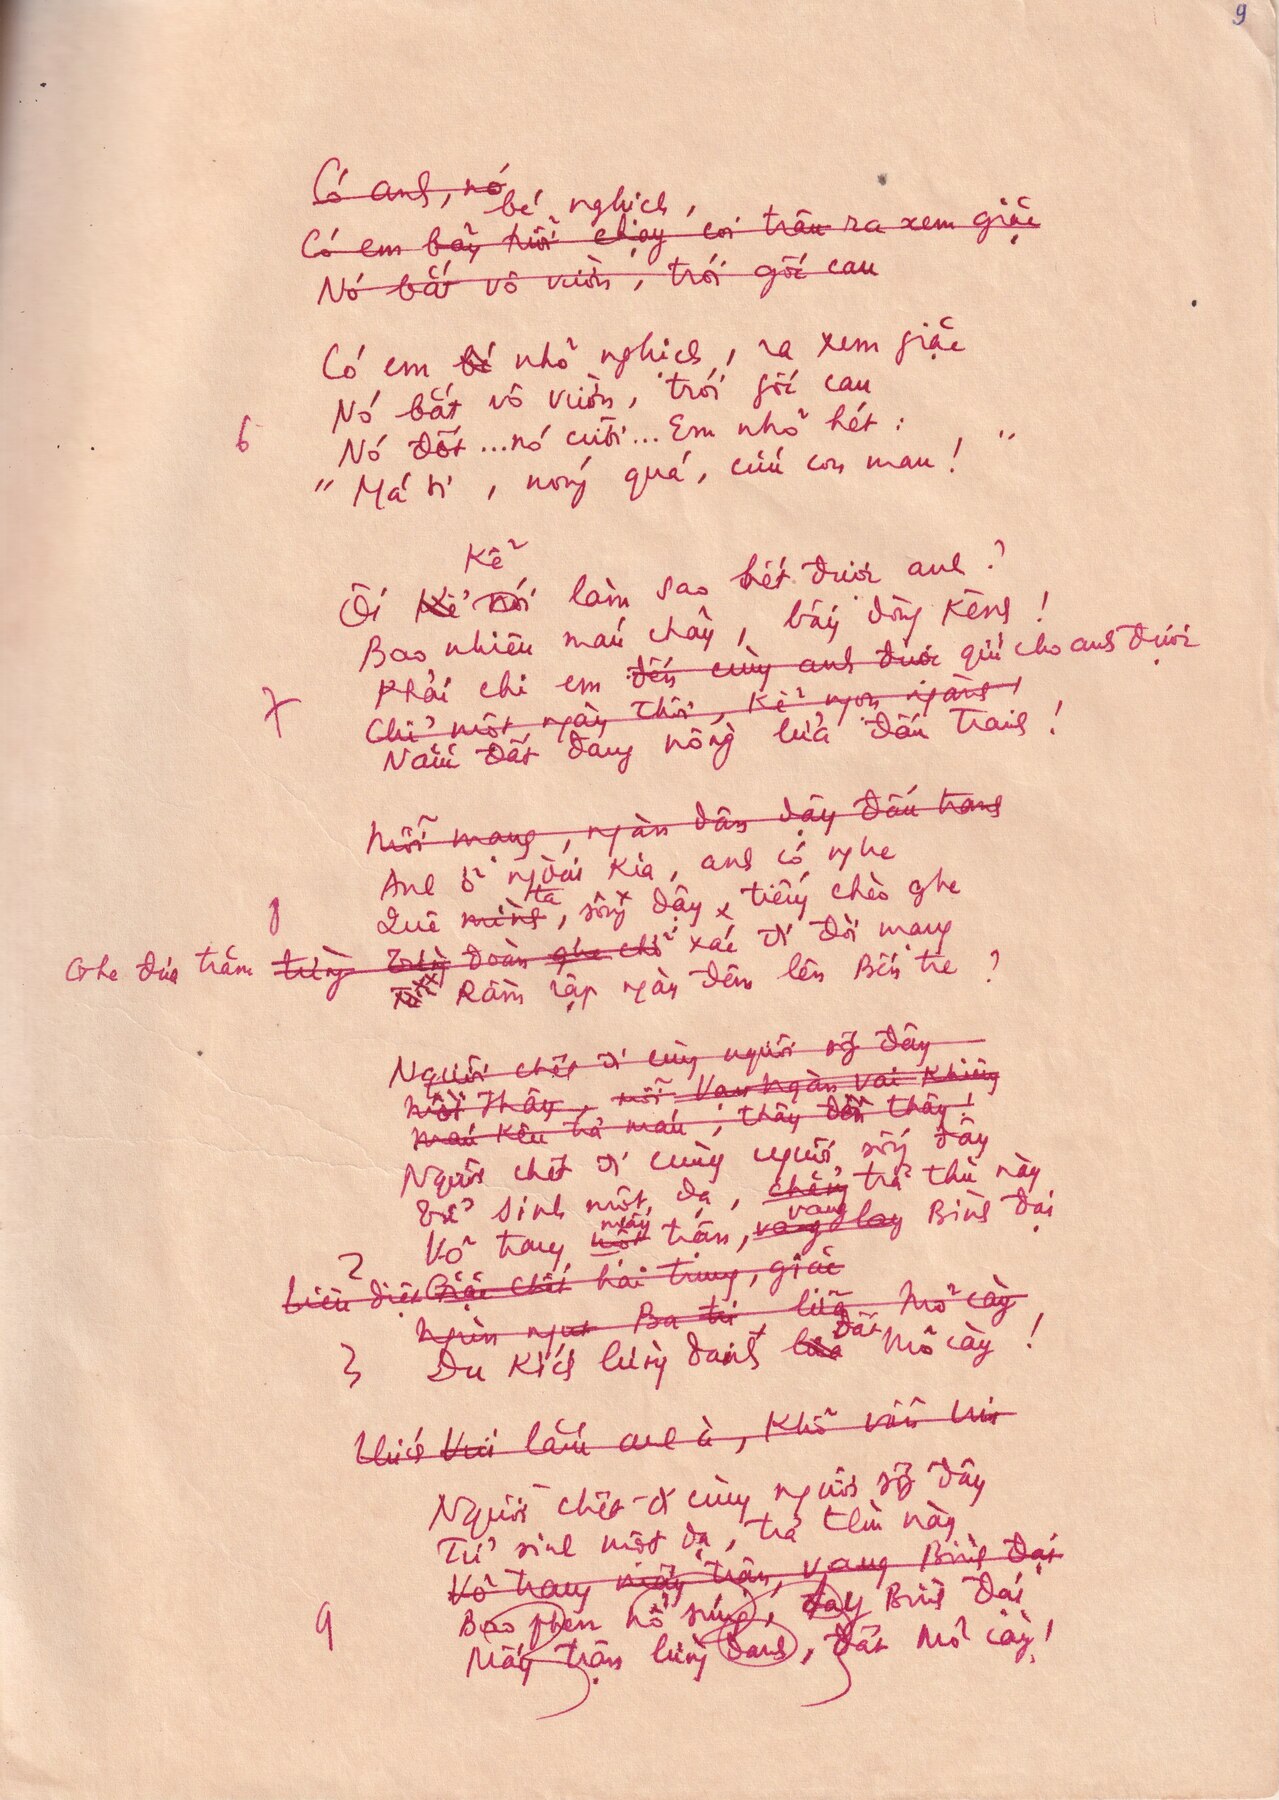 9
Có anh, nó
bé nghịch,
Có em bảy tuổi chạy coi trâu ra xem giặc
Nó bắt vô vườn, trói gốc cau
Có em bé nhỏ nghịch, ra xem giặc
Nó bắt vô vườn, trói gốc cau
6 Nó đốt... nó cười... Em nhỏ hét:
"Má ơi, nóng quá, cứu con mau!"
Kể
Ôi Kể nói làm sao hết được anh?
Bao nhiêu máu chảy, bấy dòng Kênh!
Phải chi em đến cùng anh được gửi cho anh được
7 Chỉ một ngày thôi, Kể ngọn ngành!
Nắm đất đang nóng lửa đấu tranh!
Mỗi mang, ngàn dân dậy đấu tranh
Anh ở ngoài Kia, anh có nghe
ta
8 Quê mình, sóng dậy, tiếng chèo ghe
Ghe đưa trăm từng Từng đoàn ghe chở xác đi đòi mạng
Rầm rập ngày đêm lên Bến tre?
Người chết đi cùng người sống đây
Mỗi Thây, mỗi Vạn Ngàn vai Khiêng
Máu Kêu trả máu, thây đền thây!
Người chết đi cùng người sống đây
Tử sinh một dạ, chẳng trả thù này
mấy vang
2 Võ trang một trận, vang lay Bình Đại
tiêu diệt Giặc chết hai trung, giặc
Ba tri lửa Mỏ cày
đất
3 Du Kích lừng danh lửa Mỏ cày!
Thích Vui lắm anh à, Khổ vẫn
Người chết đi cùng người sống đây
Tử sinh một dạ, trả thù này
Võ trang mấy trận, vang Bình Đại
9 Bao phen nổ súng, lay Bình Đại
Mấy trận lừng danh, đất Mỏ cày!